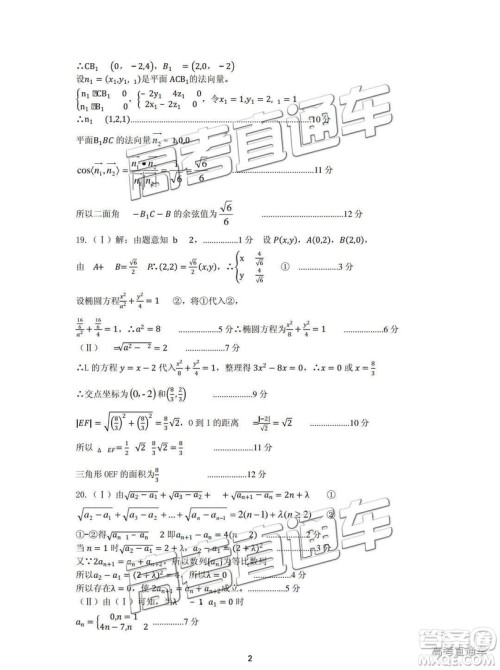 ∴CB₁ (0, −2,4), B₁ =(2,0, −2)
设n₁ =(x₁,y₁, ₁)是平面 ACB₁的法向量。
{n₁ CB₁ 0 n₁ B₁ 0, {−2y₁ 4z₁ 0 2x₁ −2z₁ 0, 令x₁ =1,y₁=2, ₁ =1
∴n₁ (1,2,1) 10 分
平面B₁BC 的法向量n₂= 1,0,0
cos⟨n₁,n₂⟩ = n₁•n₂/|n₁||n₂| = 1/√6 = √6/6 11 分
所以二面角 −B₁C−B 的余弦值为√6/6 12 分
19.(Ⅰ)解：由题意知 b 2, 1分 设 P(x,y)，A(0,2)，B(
由 A+ B=√6 P∴(2,2)=√6(x,y)，∴{x 4/√6 y 4/√6 ①
设椭圆方程x²/a²+y²/4=1 ②，将①代入②，
16/6/a²+16/6/4=1，∴a²=8 5分 ∴椭圆方程为x²/8+y²/4=1 6 分
(Ⅱ) =√a²− ²=2 7 分
∴L 的方程 y=x−2代入，整理得 3x²−8x=0，∴x=8/3
∴交点坐标为(0,-2)和(8/3,2/3) 9 分
|EF|=√(8/3)²+(8/3)²=8/3√2，O 到 l 的距离 =|−2|/√2=√2 10 分
所以 △ EF=1/2 √2 8/3√2=8/3
三角形 OEF 的面积为8/3 12 分
20.(Ⅰ)由√a₂−a₁+√a₃−a₂+ √aₙ₊₁−aₙ=2n+λ，①
√a₂−a₁+√a₃−a₂+⋯+√aₙ−aₙ₋₁=2(n−1)+λ(n≥2) ②
①−②得√aₙ₊₁−aₙ=2 即aₙ₊₁−aₙ=4(n 2) 2分
当 n=1 时√a₂−a₁=2+λ，∴a₂−a₁=(2+λ)² 3分
又∵2aₙ₊₁=aₙ+aₙ₊₂，所以数列{aₙ}为等比数列
所以a₂−a₁=(2+λ)²=4，所以λ=0
所以存在λ=0，使成立。 6 分
(Ⅱ)由(Ⅰ)可知，当λ −1 0时
aₙ={0,n=1 4n−7,n 2 7 分
2
高考直通车
高考直通车
高考直通车
答案圈
MXQE.COM